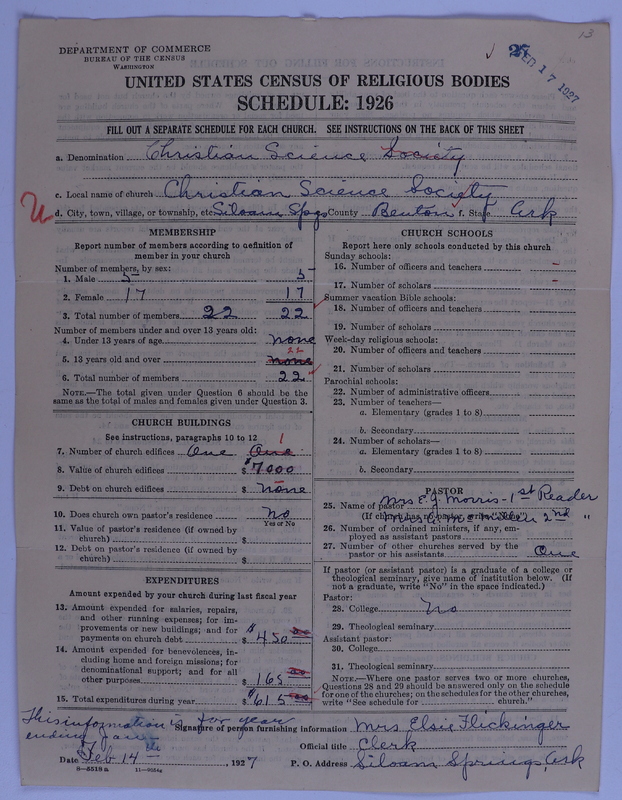 13
DEPARTMENT OF COMMERCE
BUREAU OF THE CENSUS
WASHINGTON
25
FEB 17 1927
UNITED STATES CENSUS OF RELIGIOUS BODIES
SCHEDULE: 1926
FILL OUT A SEPARATE SCHEDULE FOR EACH CHURCH. SEE INSTRUCTIONS ON THE BACK OF THIS SHEET
a. Denomination Christian Science Society
c. Local name of church Christian Science Society
d. City, town, village, or township, etc. Siloam Spgs County Benton f. State Ark
MEMBERSHIP
Report number of members according to definition of
member in your church
Number of members, by sex:
1. Male 5 5
2. Female 17 17
3. Total number of members 22 22
Number of members under and over 13 years old:
4. Under 13 years of age none
22
5. 13 years old and over none
6. Total number of members 22
NOTE.—The total given under Question 6 should be
same as the total of males and females given under Question 3.
CHURCH BUILDINGS
See instructions, paragraphs 10 to 12 1
7. Number of church edifices One One
8. Value of church edifices $ 7000
9. Debt on church edifices $ none
10. Does church own pastor's residence? No
Yes or No
11. Value of pastor's residence (if owned by
church) $
12. Debt on pastor's residence (if owned by
church) $
EXPENDITURES
Amount expended by your church during last fiscal year
13. Amount expended for salaries, repairs,
and other running expenses; for im-
provements or new buildings; and for
payments on church debt $ 450 00
14. Amount expended for benevolences, in-
cluding home and foreign missions; for
denominational support; and for all
other purposes $ 165 00
15. Total expenditures during year $ 615 00
CHURCH SCHOOLS
Report here only schools conducted by this church
Sunday schools:
16. Number of officers and teachers –
17. Number of scholars –
Summer vacation Bible schools:
18. Number of officers and teachers
19. Number of scholars
Week-day religious schools:
20. Number of officers and teachers
21. Number of scholars
Parochial schools:
22. Number of administrative officers
23. Number of teachers—
a. Elementary (grades 1 to 8)
b. Secondary
24. Number of scholars—
a. Elementary (grades 1 to 8)
b. Secondary
PASTOR
25. Name of pastor Mrs E. J. Morris - 1st Reader
(If church has no pastor, write "No") 2nd "
26. Number of ordained ministers, if any, em-
ployed as assistant pastors
27. Number of other churches served by the
pastor or his assistants One
If pastor (or assistant pastor) is a graduate of a college or
theological seminary, give name of institution below. (If
not a graduate, write "No" in the space indicated.)
Pastor:
28. College No
29. Theological seminary
Assistant pastor:
30. College
31. Theological seminary
NOTE.—Where one pastor serves two or more churches,
Questions 28 and 29 should be answered only on the schedule
for one of the churches; on the schedules for the other churches,
write "See schedule for church."
This information is for year
ending Jan
Signature of person furnishing information Mrs Elsie Flickinger
Official title Clerk
Date Feb 14th, 1927 P. O. Address Siloam Springs, Ark
8—5518 a